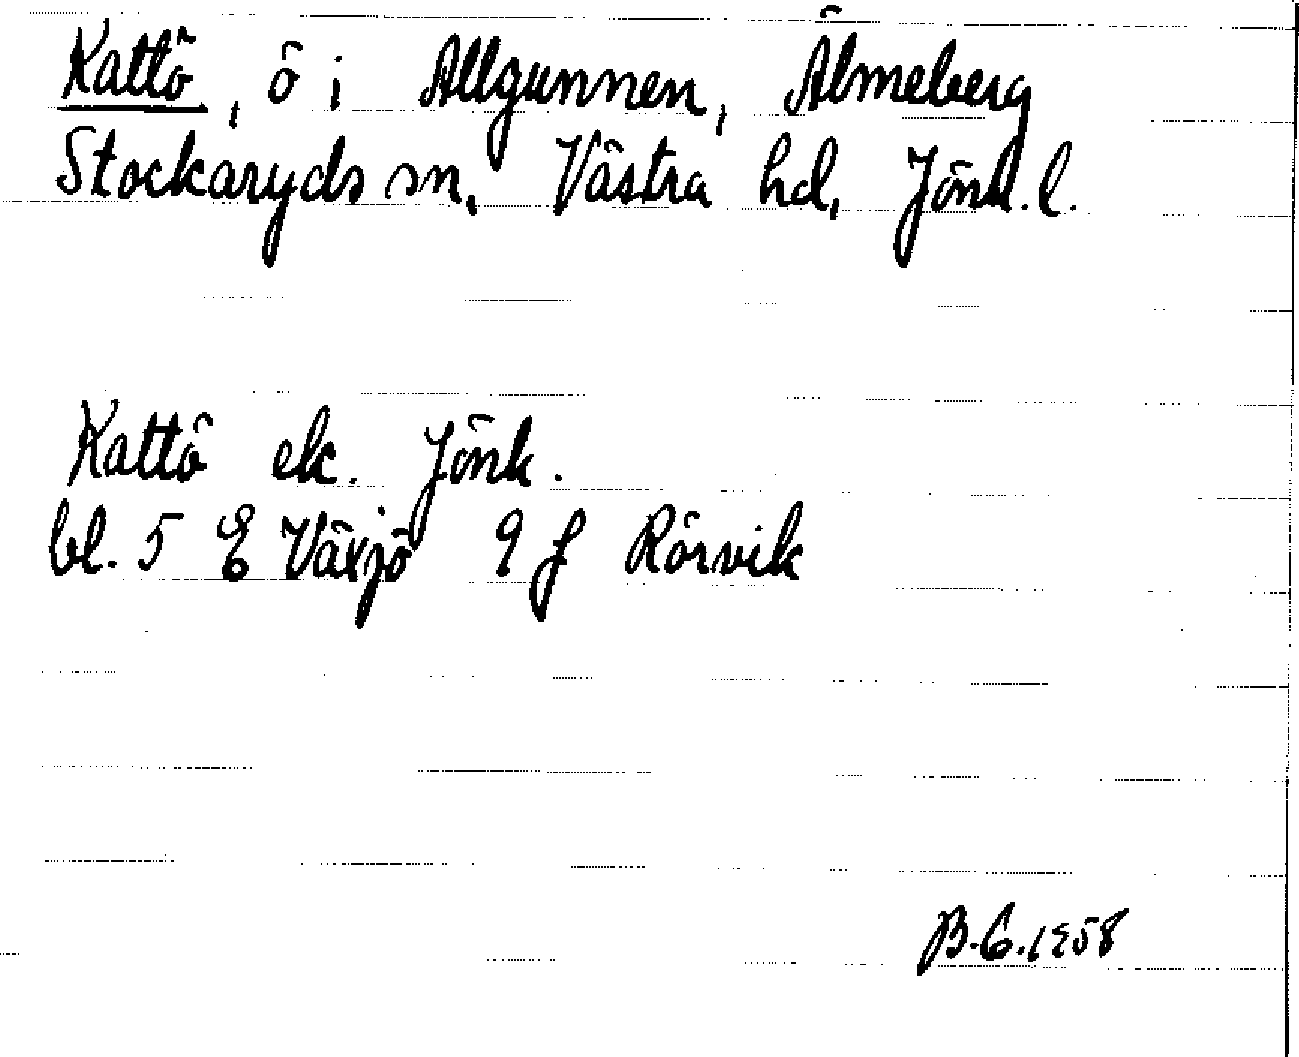 Kattö, ö i Allgunnen, Älmeberg
Stockaryds sn, Västra hd, Jönk. l.
Kattö ek. Jönk.
bl. 5 E Växjö 9 f Rörvik
B.G.1958